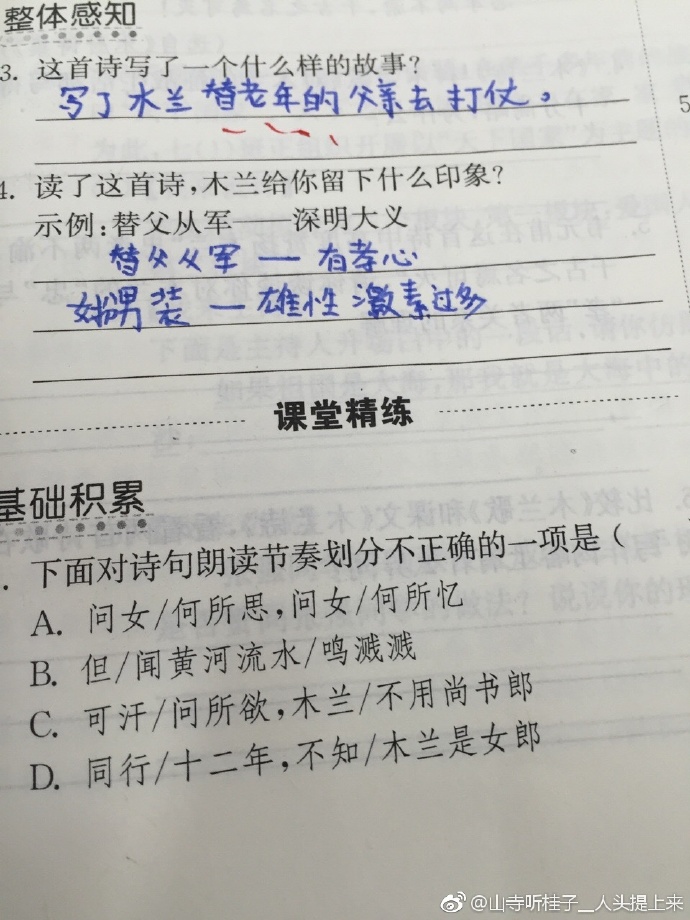 整体感知
3. 这首诗写了一个什么样的故事?
写了木兰替老年的父亲去打仗。
4. 读了这首诗,木兰给你留下什么印象?
示例:替父从军——深明大义
替父从军 — 有孝心
男装 — 雄性激素过多
课堂精练
基础积累
. 下面对诗句朗读节奏划分不正确的一项是(
A. 问女/何所思,问女/何所忆
B. 但/闻黄河流水/鸣溅溅
C. 可汗/问所欲,木兰/不用尚书郎
D. 同行/十二年,不知/木兰是女郎
5
@山寺听桂子__人头提上来